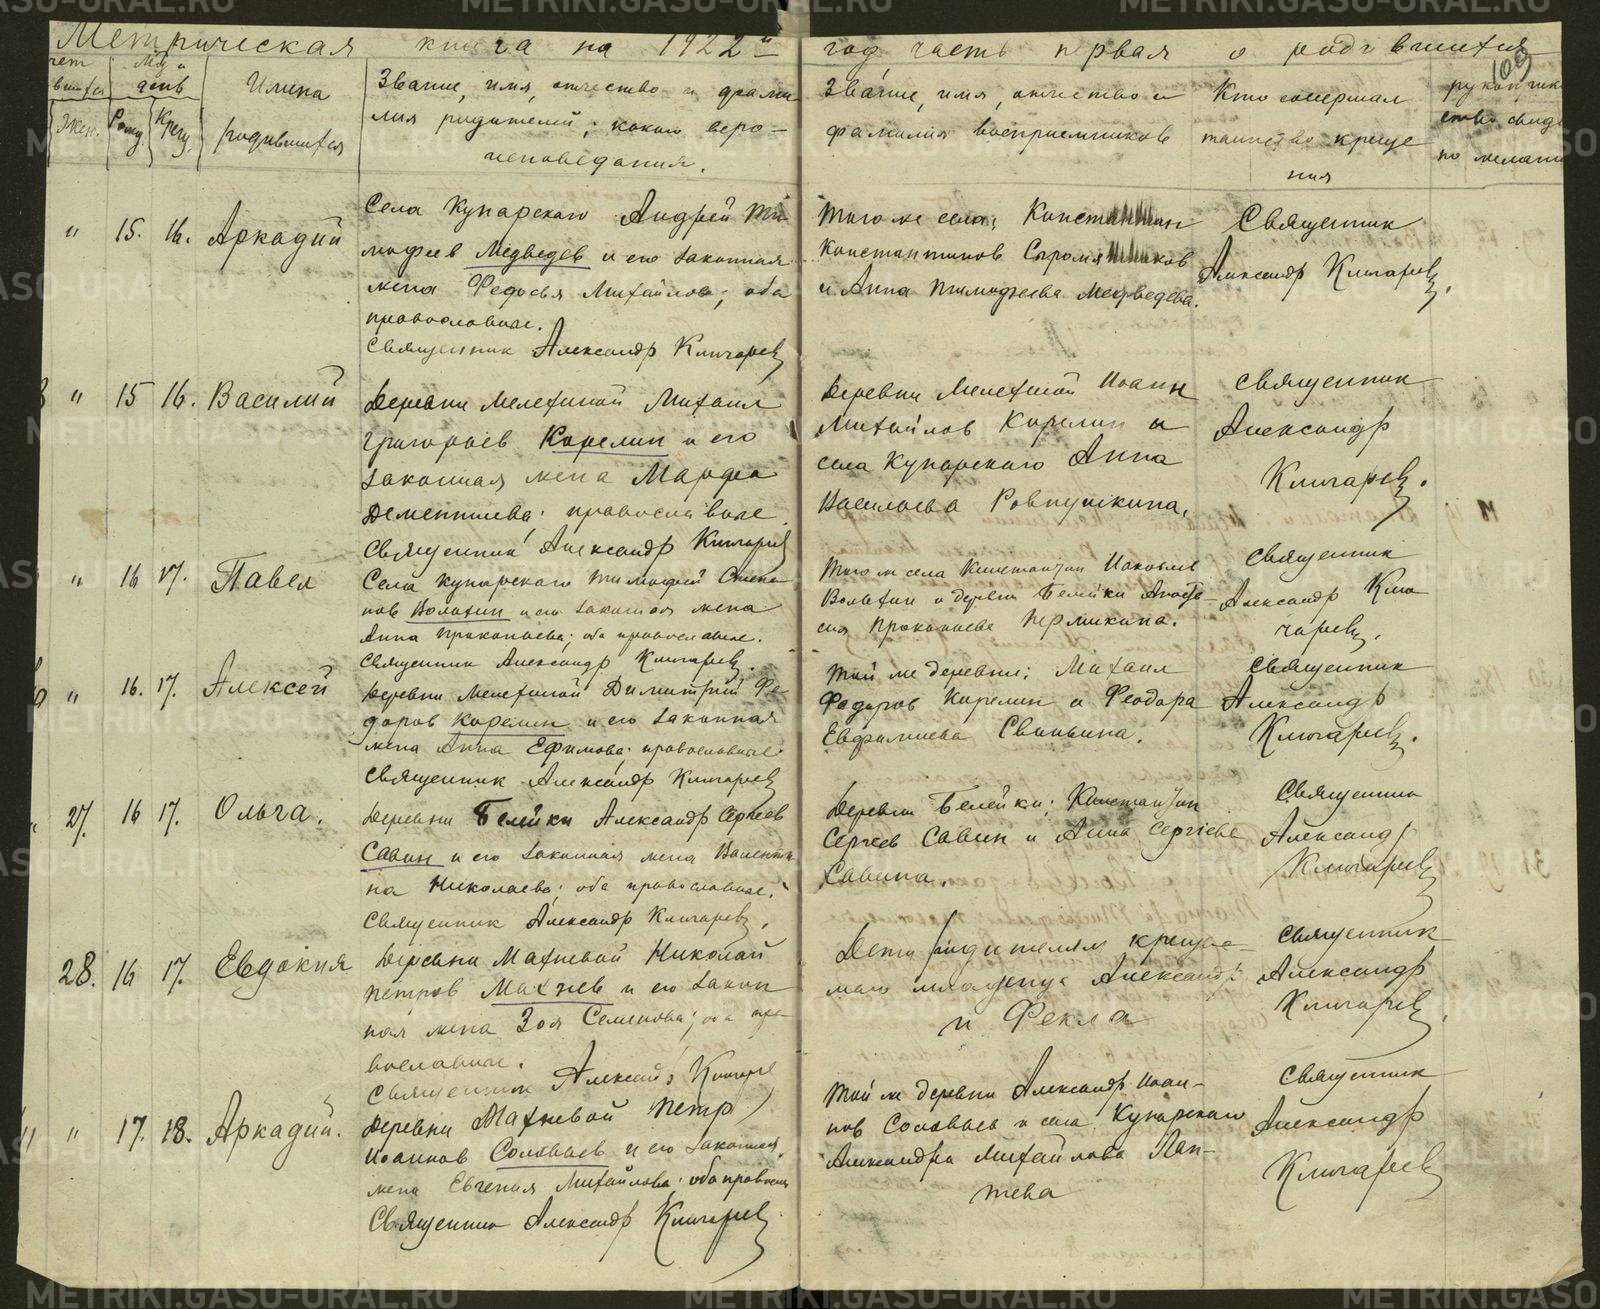 Метрическая книга на 1922й год часть первая о родившихся
109
Мц и
день
Жен.
Рожд.
Крещ.
Имена
родившихся
Звание, имя, отчество и фами-
лия родителей; какого веро-
исповедания.
Звание, имя, отчество и
фамилия восприемников
Кто совершал
таинство креще
ния
" 15. 16. Аркадий
Села Кунарского Андрей Ти-
мофеев Медведев и его законная
жена Федосья Михайлова; оба
православные.
Священник Александр Ключарев
Того же села; Константин
Константинов Сыромятников
и Анна Тимофеева Медведева.
Священник
Александр Ключарев.
" 15 16. Василий
Деревни Мелехиной Михаил
Григорьев Корелин и его
законная жена Марфа
Дементиева; православные
Священник Александр Ключарев
Деревни Мелехиной Иоанн
Михайлов Корелин и
села Кунарского Анна
Васильева Ровнушкина.
Священник
Александр
Ключарев.
" 16 17. Павел
Села Кунарского Тимофей Степа-
нов Волохин и его законная жена
Анна Прокопьева; оба православные.
Священник Александр Ключарев.
Того же села Константин Иаковлев
Волохин и деревни Белейки Анаста-
сия Прокопьева Пермикина.
Священник
Александр Клю
чарев.
" 16. 17. Алексей
Деревни Мелехиной Димитрий Фе-
доров Корелин и его законная
жена Анна Ефимова; православные.
Священник Александр Ключарев
Той же деревни; Михаил
Федоров Корелин и Феодора
Евфимиева Свиньина.
Священник
Александр
Ключарев.
27. 16 17. Ольга.
Деревни Белейки Александр Сергеев
Савин и его законная жена Валенти-
на Николаева; оба православные.
Священник Александр Ключарев.
Деревни Белейки; Константин
Сергеев Савин и Анна Сергиева
Савина.
Священник
Александр
Ключарев
28. 16 17. Евдокия
Деревни Махневой Николай
Петров Махнев и его закон
ная жена Зоя Семенова; оба пра-
вославные.
Священник Александр Ключарев
Дети родителям крещае-
маго младенца Александр
и Фекла
Священник
Александр
Ключарев.
" 17. 18. Аркадий.
Деревни Махневой Петр
Иоаннов Соловьев и его законная
жена Евгения Михайлова; оба православн
Священник Александр Ключарев
Той же деревни Александр Иоан-
нов Соловьев и села Кунарского
Александра Михайлова Лап-
тева
Священник
Александр
Ключарев
METRIKI.GASO-URAL.RU